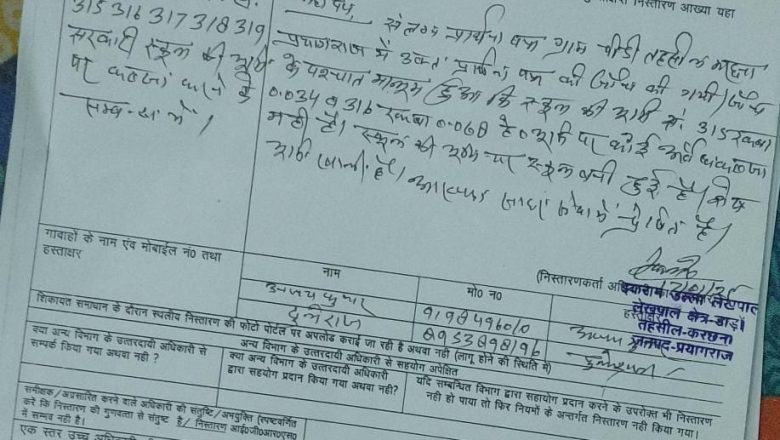 315 316 317 318 319
सरकारी स्कूल की भूमि
पर कब्जा करने के
सम्बन्ध में।
निस्तारण आख्या यहा
महोदय,
संलग्न प्रार्थना पत्र ग्राम तहसील करछना
प्रयागराज में उक्त प्रार्थना पत्र की जाँच की गयी। जाँच
के पश्चात मालूम हुआ कि स्कूल की भूमि सं. 315 रकबा
0.034 व 316 रकबा 0.068 है भूमि पर कोई अवैध कब्जा
नही है। स्कूल की भूमि पर स्कूल बनी हुई है। शेष
भूमि खाली है। आख्या सेवा में प्रेषित है।
(निस्तारणकर्ता
लेखपाल
लेखपाल क्षेत्र-डाड़ों
तहसील-करछना
जनपद-प्रयागराज
गावाहों के नाम एंव मोबाईल नं0 तथा
हस्ताक्षर
नाम
मो0 न0
अजय कुमार
हस्ताक्षर
शिकायत समाधान के दौरान स्थलीय निस्तारण की फोटो पोर्टल पर अपलोड कराई जा रही है अथवा नही (लागू होने की स्थिति में)
अन्य विभाग के उत्तरदायी अधिकारी से सहयोग अपेक्षित
क्या अन्य विभाग के उत्तरदायी अधिकारी से
सम्पर्क किया गया अथवा नही ?
क्या अन्य विभाग के उत्तरदायी अधिकारी
द्वारा सहयोग प्रदान किया गया अथवा नही?
यदि सम्बन्धित विभाग द्वारा सहयोग प्रदान करने के उपरोक्त भी निस्तारण
नही हो पाया तो फिर नियमों के अन्तर्गत निस्तारण नही किया गया।
समीक्षक/अग्रसारित करने वाले अधिकारी की संतुष्टि/अभ्युक्ति (स्पष्टवर्णित
करे कि निस्तारण की गुणवत्ता से संतुष्ट है/ निस्तारण आई०जी०आर०एस०
में सम्भव नही है।
एक स्तर उच्च